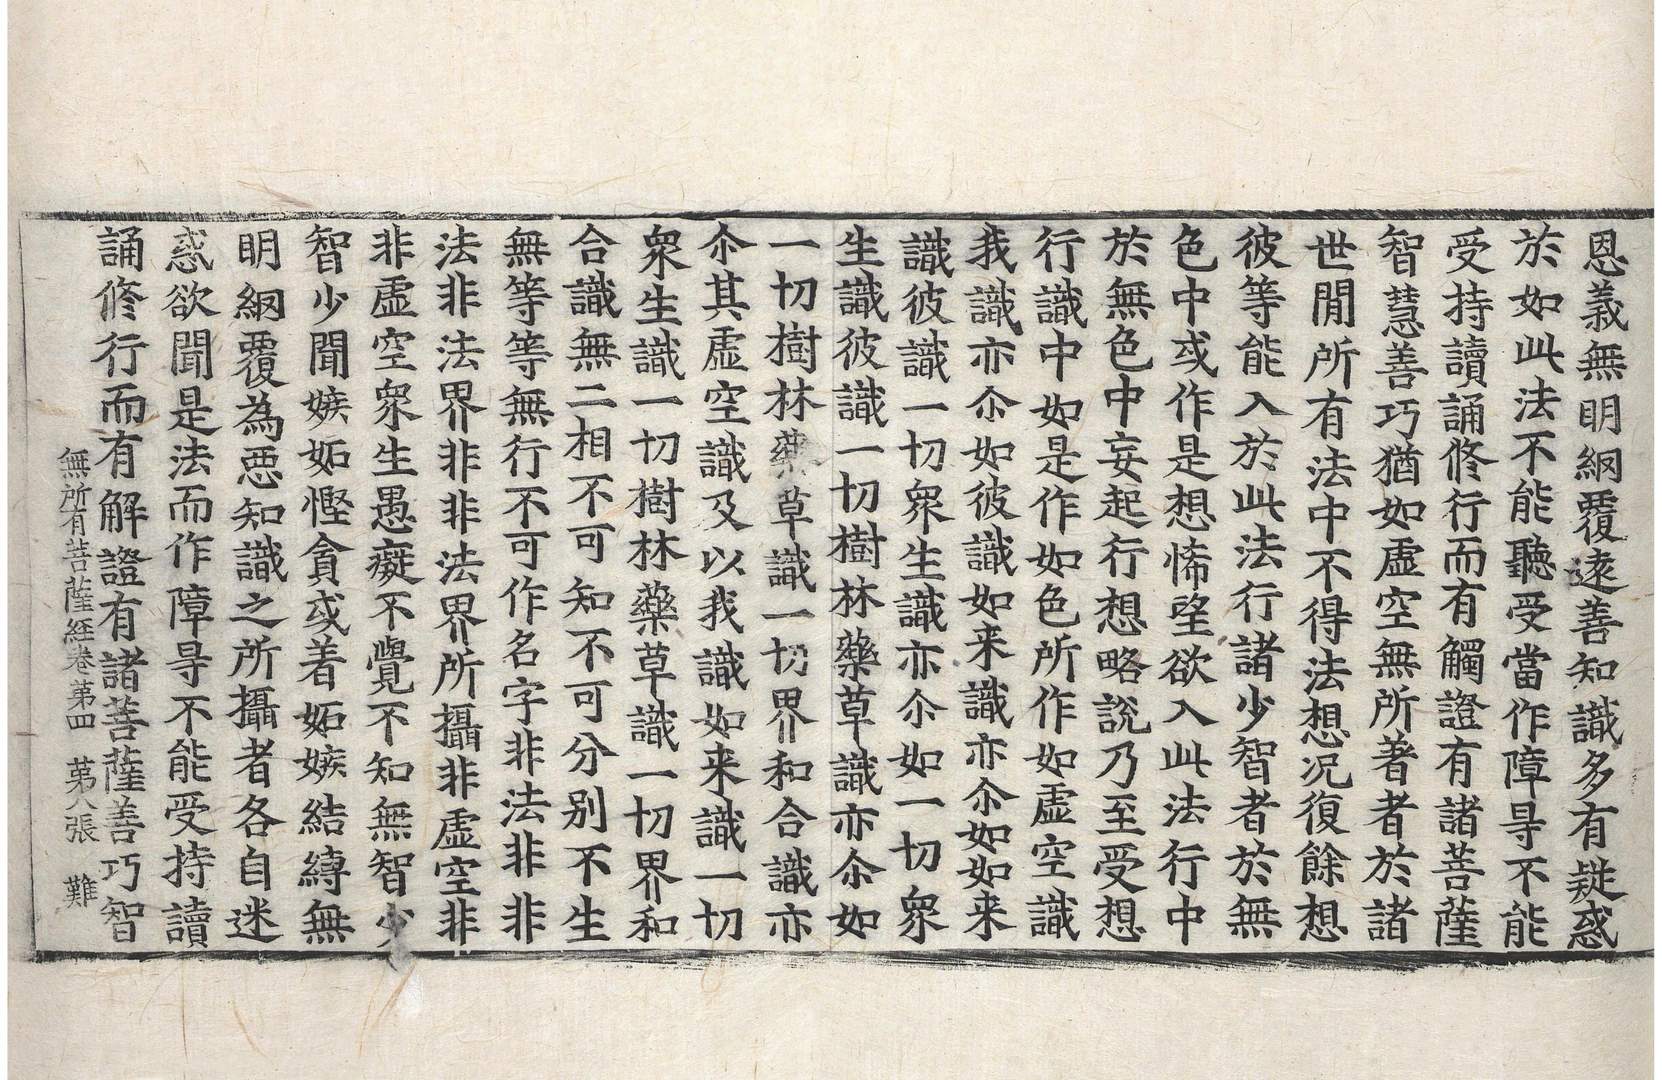 恩義無明網覆遠善知識多有疑惑
於如此法不能聽受當作障㝵不能
受持讀誦修行而有觸證有諸菩薩
智慧善巧猶如虛空無所著者於諸
世閒所有法中不得法想況復餘想
彼等能入於此法行諸少智者於無
色中或作是想悕望欲入此法行中
於無色中妄起行想略說乃至受想
行識中如是作如色所作如虛空識
我識亦尒如彼識如来識亦尒如如来
識彼識一切衆生識亦尒如一切衆
生識彼識一切樹林藥草識亦尒如
一切樹林藥草識一切界和合識亦
尒其虛空識及以我識如来識一切
衆生識一切樹林藥草識一切界和
合識無二相不可知不可分別不生
無等等無行不可作名字非法非非
法非法界非非法界所攝非虛空非
非虛空衆生愚癡不覺不知無智少
智少聞嫉妬慳貪或着妬嫉結縛無
明網覆為惡知識之所攝者各自迷
惑欲聞是法而作障㝵不能受持讀
誦修行而有解證有諸菩薩善巧智
無所有菩薩経卷第四　第八張　難